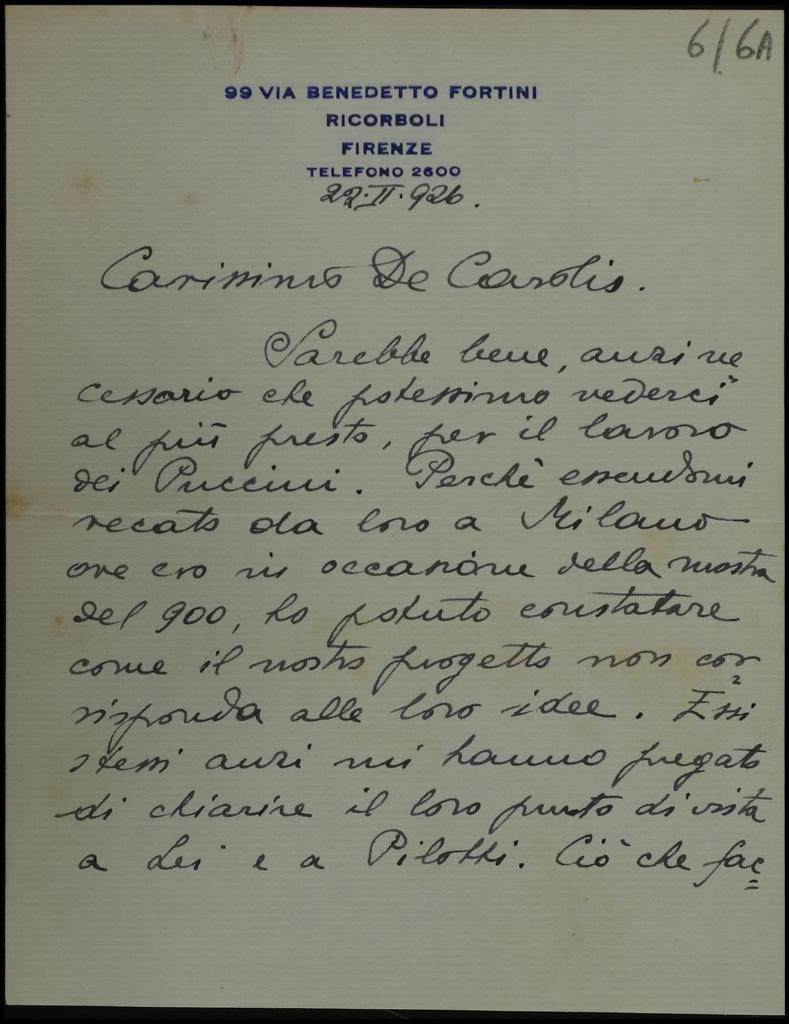 6/6A
99 VIA BENEDETTO FORTINI
RICORBOLI
FIRENZE
TELEFONO 2600
22.II.926.
Carissimo De Carolis.
Sarebbe bene, anzi ne
cessario che potessimo vederci
al più presto, per il lavoro
dei Puccini. Perchè essendomi
recato da loro a Milano
ove ero in occasione della mostra
del 900, ho potuto constatare
come il nostro progetto non cor
risponda alle loro idee. Essi
stessi anzi mi hanno pregato
di chiarire il loro punto di vista
a Lei e a Pilotti. Ciò che fac=